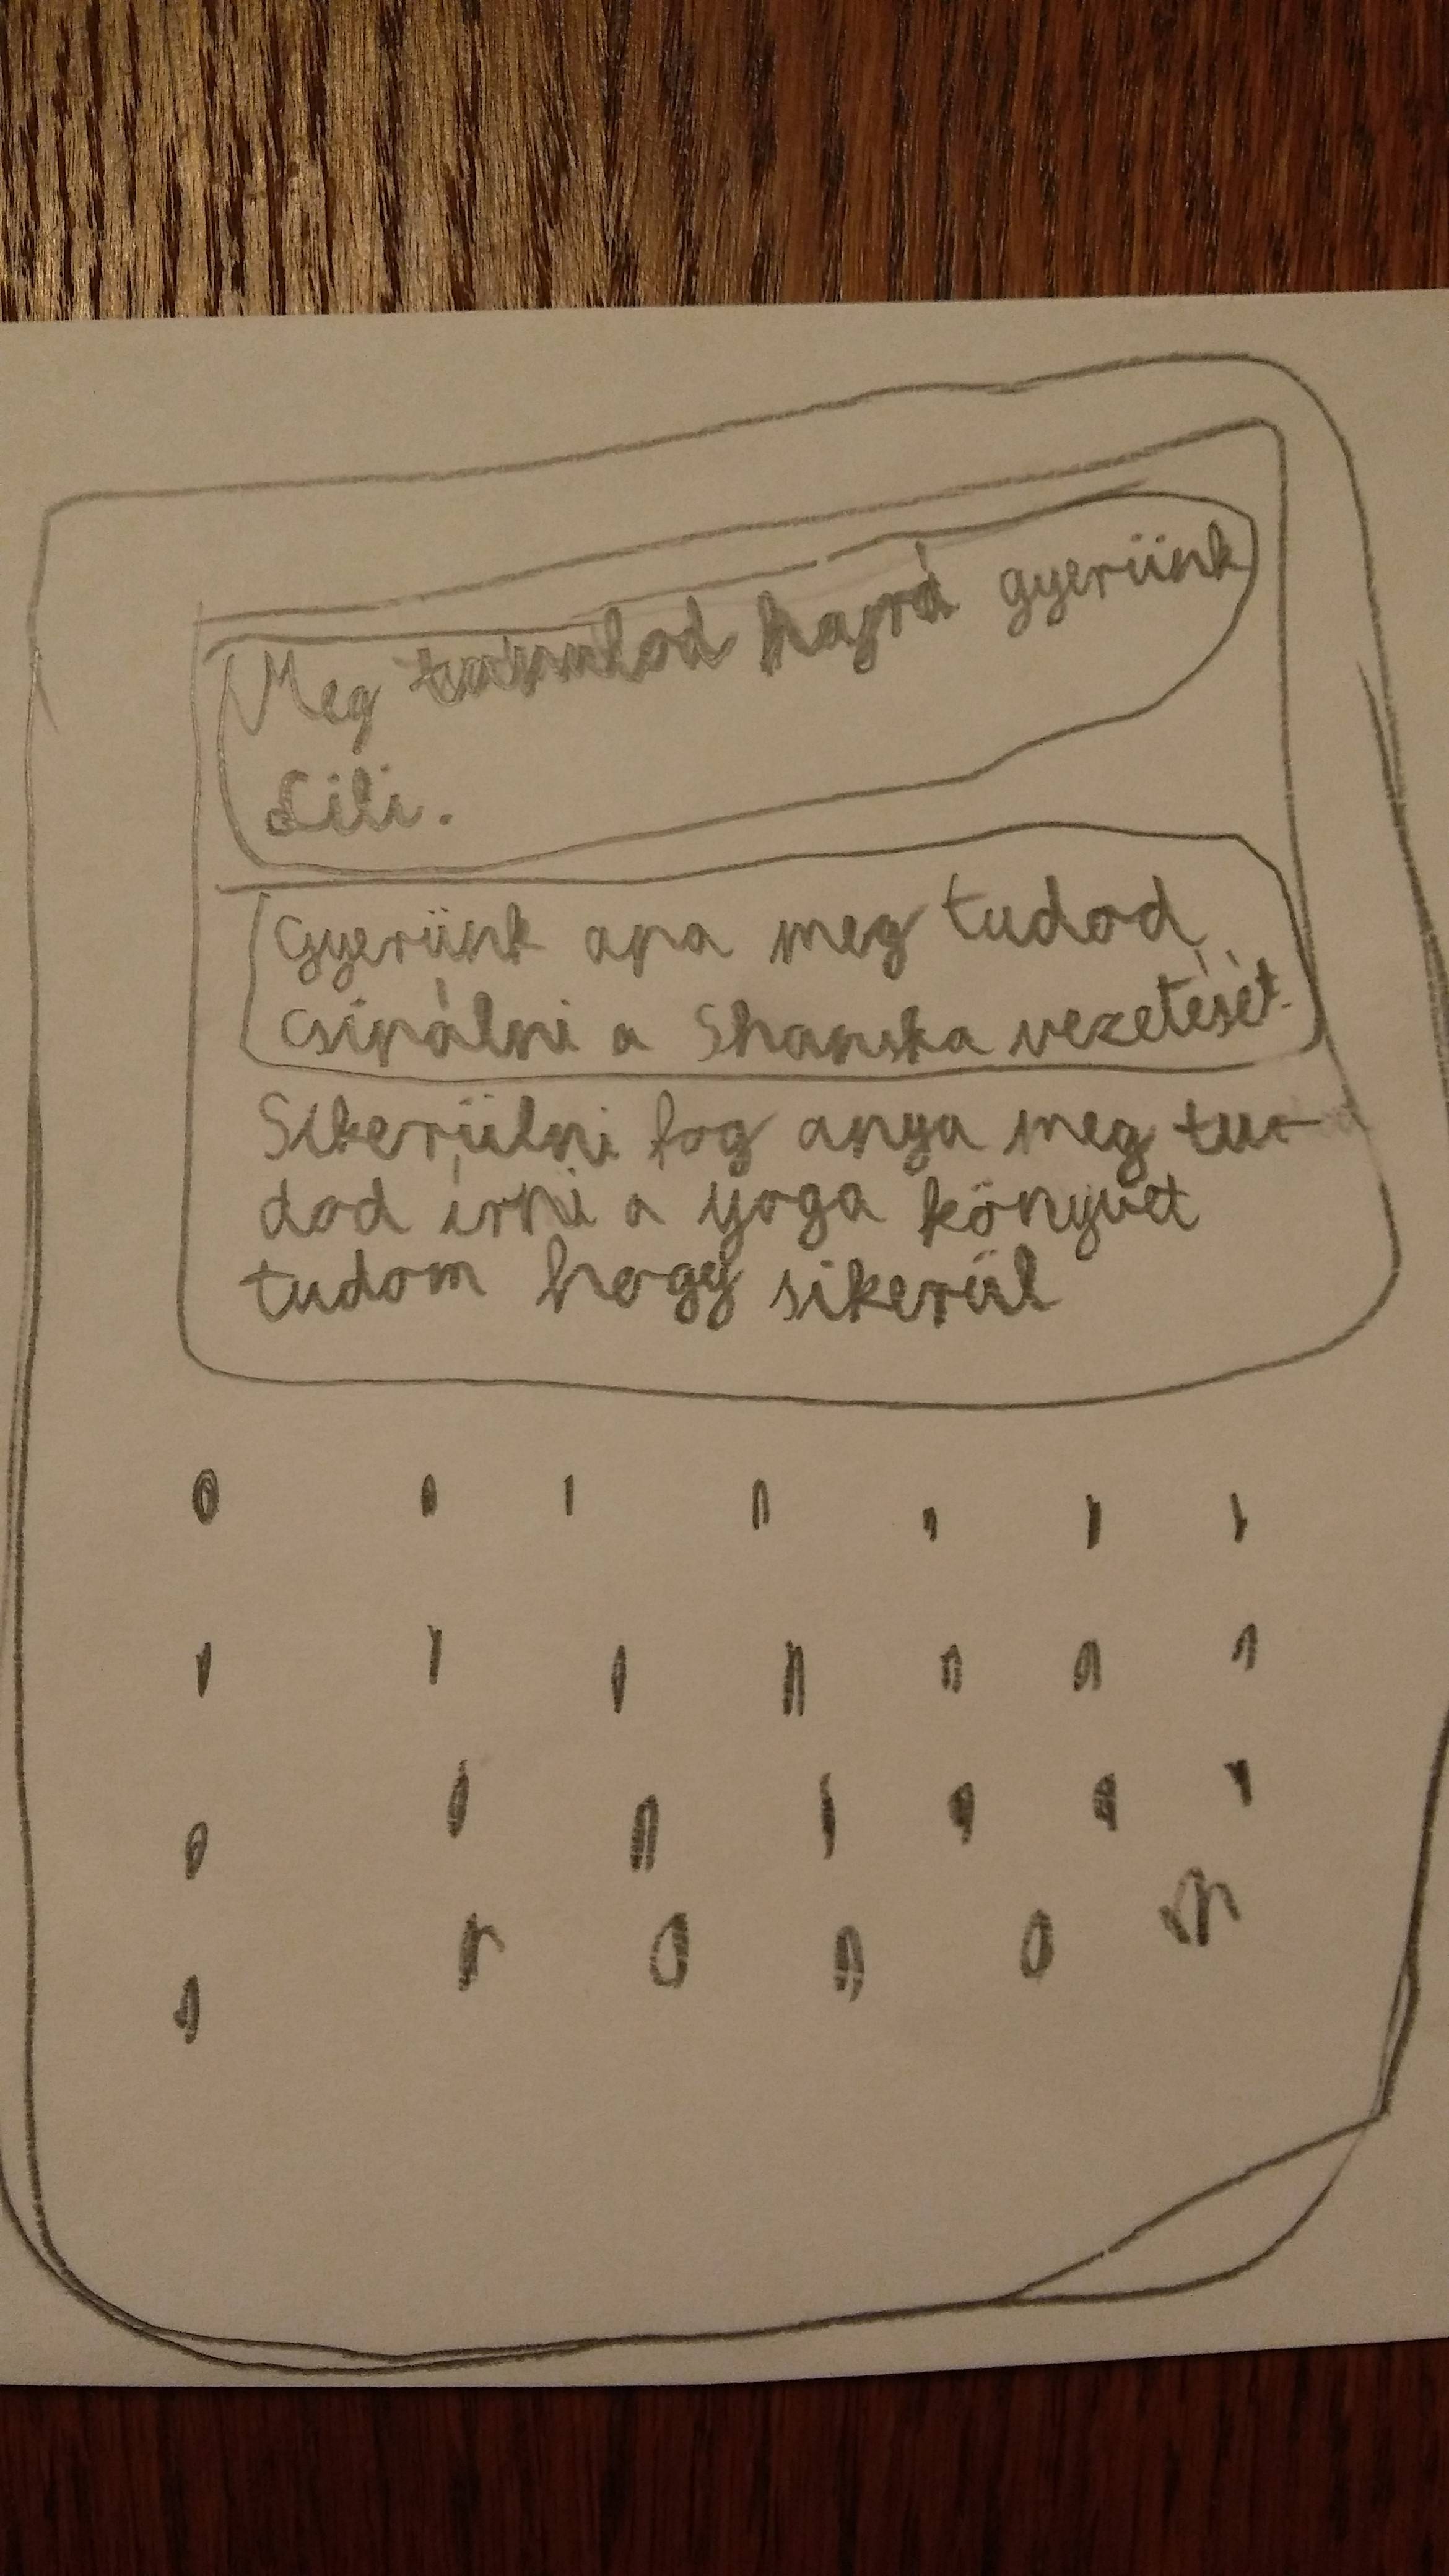 Meg tanulod hajrá gyerünk
Lili.
Gyerünk apa meg tudod
csinálni a Shanska vezetését
Sikerülni fog anya meg tu-
dod írni a yoga könyvet
tudom hogy sikerül